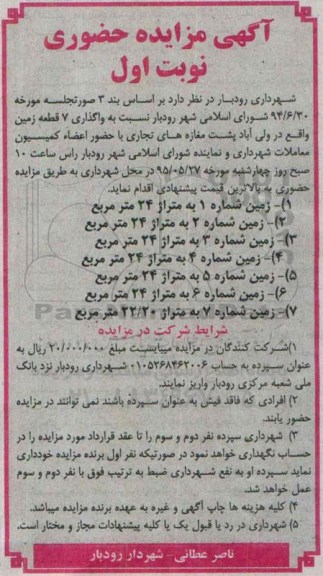 آگهی مزایده حضوری
نوبت اول
شهرداری رودبار در نظر دارد بر اساس بند ۳ صورتجلسه مورخه
۹۴/۶/۳۰ شورای اسلامی شهر رودبار نسبت به واگذاری ۷ قطعه زمین
واقع در ولی آباد پشت مغازه های تجاری با حضور اعضاء کمیسیون
معاملات شهرداری و نماینده شورای اسلامی شهر رودبار راس ساعت ۱۰
صبح روز چهارشنبه مورخه ۹۵/۰۵/۲۷ در محل شهرداری به طریق مزایده
حضوری به بالاترین قیمت پیشنهادی اقدام نماید.
۱)- زمین شماره ۱ به متراژ ۲۴ متر مربع
۲)- زمین شماره ۲ به متراژ ۲۴ متر مربع
۳)- زمین شماره ۳ به متراژ ۲۴ متر مربع
۴)- زمین شماره ۴ به متراژ ۲۴ متر مربع
۵)- زمین شماره ۵ به متراژ ۲۴ متر مربع
۶)- زمین شماره ۶ به متراژ ۲۴ متر مربع
۷)- زمین شماره ۷ به متراژ ۲۲/۲۰ متر مربع
شرایط شرکت در مزایده
۱)شرکت کنندگان در مزایده میبایست مبلغ ۲۰/۰۰۰/۰۰۰ ریال به
عنوان سپرده به حساب ۰۱۰۵۲۶۸۴۶۲۰۰۶ شهرداری رودبار نزد بانک
ملی شعبه مرکزی رودبار واریز نمایند.
۲) افرادی که فاقد فیش به عنوان سپرده باشند نمی توانند در مزایده
حضور یابند.
۳) شهرداری سپرده نفر دوم و سوم را تا عقد قرارداد مورد مزایده را در
حساب نگهداری خواهد نمود در صورتیکه نفر اول برنده مزایده خودداری
نماید سپرده او به نفع شهرداری ضبط به ترتیب فوق با نفر دوم و سوم
عمل خواهد شد.
۴) کلیه هزینه ها چاپ آگهی و غیره به عهده برنده مزایده میباشد.
۵) شهرداری در رد یا قبول یک یا کلیه پیشنهادات مجاز و مختار است.
ناصر عطائی- شهردار رودبار